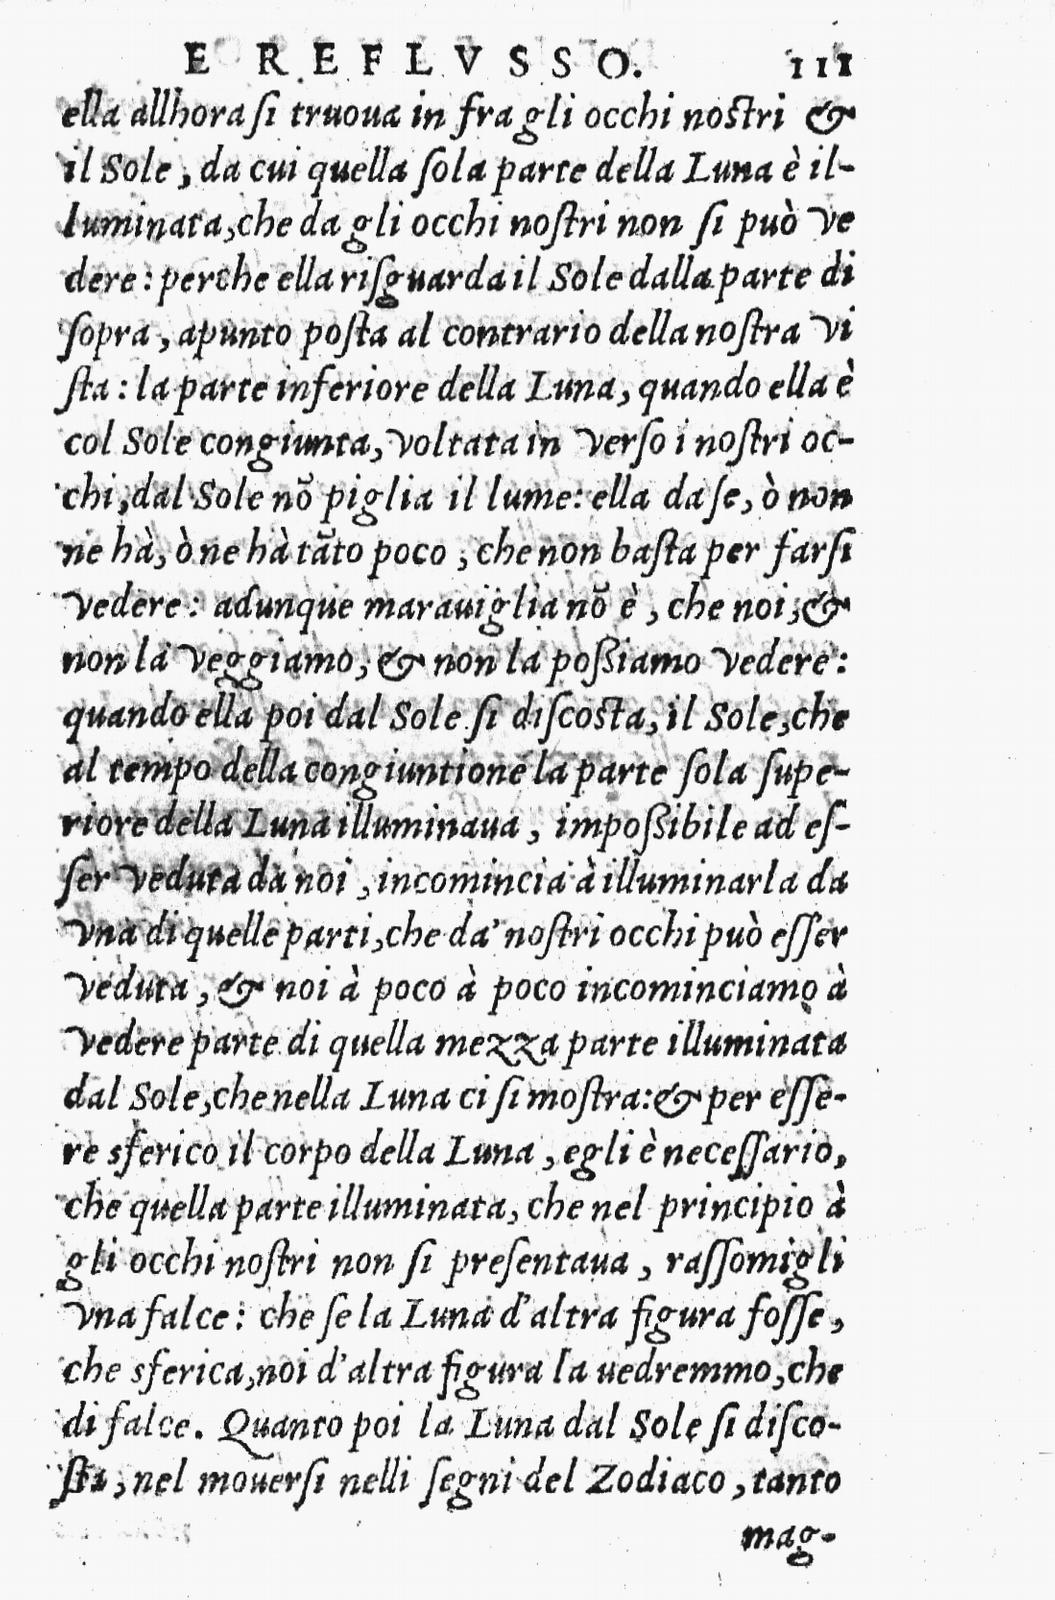 E REFLVSSO. 111
ella allhora ſi truoua in fra gli occhi noſtri &
il Sole, da cui quella ſola parte della Luna è il-
luminata, che da gli occhi noſtri non ſi può ve
dere: perche ella riſguarda il Sole dalla parte di
ſopra, apunto poſta al contrario della noſtra vi
ſta: la parte inferiore della Luna, quando ella è
col Sole congiunta, voltata in verſo i noſtri oc-
chi, dal Sole nõ piglia il lume: ella da ſe, ò non
ne hà, ò ne hà tãto poco, che non baſta per farſi
vedere: adunque marauiglia nõ è, che noi, &
non la veggiamo, & non la poßiamo vedere:
quando ella poi dal Sole ſi diſcoſta, il Sole, che
al tempo della congiuntione la parte ſola ſupe-
riore della Luna illuminaua, impoßibile ad eſ-
ſer veduta da noi, incomincia à illuminarla da
vna di quelle parti, che da' noſtri occhi può eſſer
veduta, & noi à poco à poco incominciamo à
vedere parte di quella mezza parte illuminata
dal Sole, che nella Luna ci ſi moſtra: & per eſſe-
re sferico il corpo della Luna, egli è neceſſario,
che quella parte illuminata, che nel principio à
gli occhi noſtri non ſi preſentaua, raſſomigli
vna falce: che ſe la Luna d'altra figura foſſe,
che sferica, noi d'altra figura la uedremmo, che
di falce. Quanto poi la Luna dal Sole ſi diſco-
ſta, nel mouerſi nelli ſegni del Zodiaco, tanto
mag-